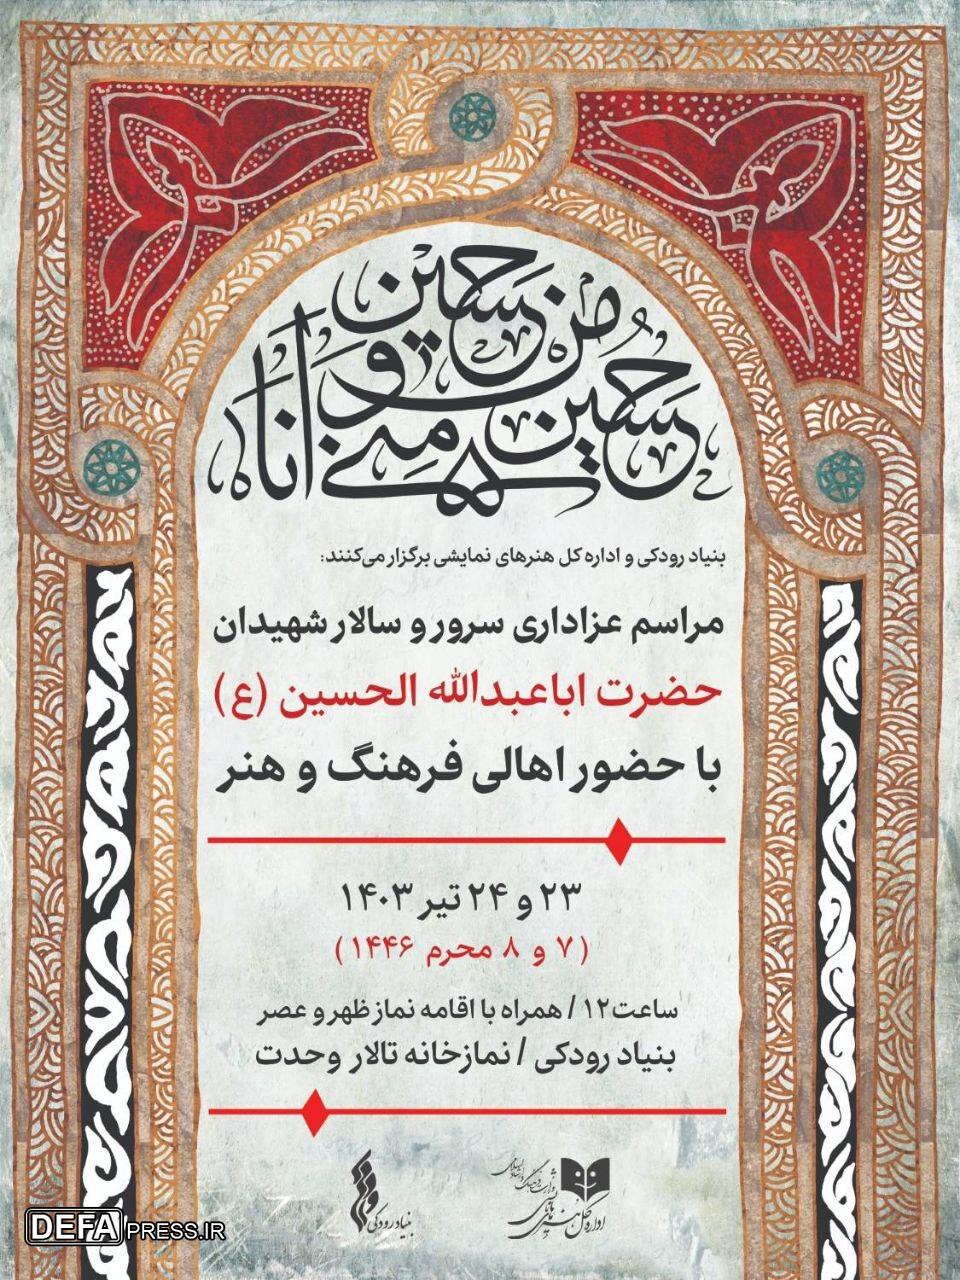 حسین منی و انا من حسین
بنیاد رودکی و اداره کل هنرهای نمایشی برگزار می‌کنند:
مراسم عزاداری سرور و سالار شهیدان
حضرت اباعبدالله الحسین (ع)
با حضور اهالی فرهنگ و هنر
۲۳ و ۲۴ تیر ۱۴۰۳
(۷ و ۸ محرم ۱۴۴۶)
ساعت۱۲ / همراه با اقامه نماز ظهر و عصر
بنیاد رودکی / نمازخانه تالار وحدت
وزارت فرهنگ و ارشاد اسلامی
اداره کل هنرهای نمایشی
بنیاد رودکی
DEFAPRESS.IR